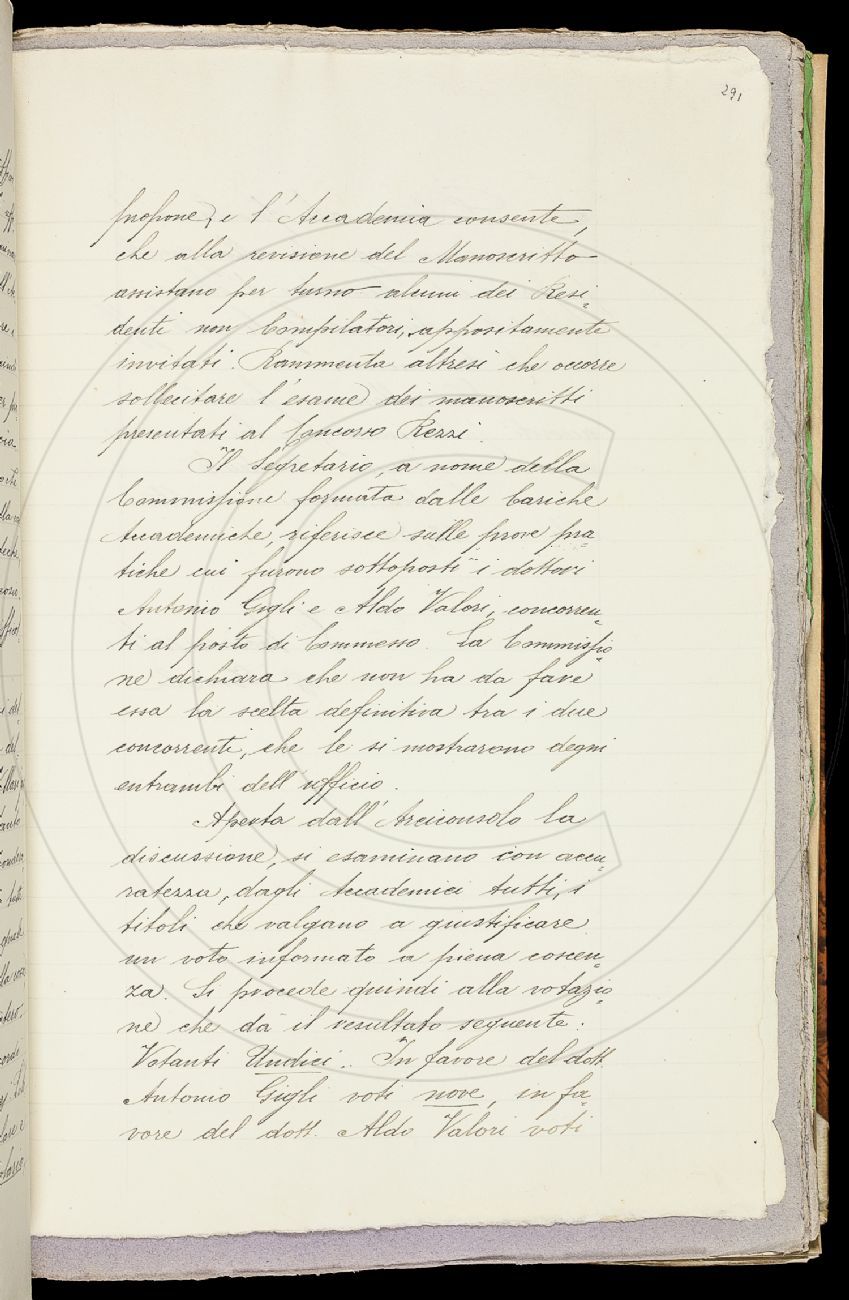 291
propone, e l'Accademia consente,
che alla revisione del Manoscritto
assistano per turno alcuni dei Resi-
denti non Compilatori, appositamente
invitati. Rammenta altresì che occorre
sollecitare l'esame dei manoscritti
presentati al Concorso Rezzi.
Il Segretario, a nome della
Commissione formata dalle Cariche
Accademiche, riferisce sulle prove pra-
tiche cui furono sottoposti i dottori
Antonio Gigli e Aldo Valori, concorren-
ti al posto di Commesso. La Commissio-
ne dichiara che non ha da fare
essa la scelta definitiva tra i due
concorrenti, che le si mostrarono degni
entrambi dell'ufficio.
Aperta dall'Arciconsolo la
discussione, si esaminano con accu-
ratezza, dagli Accademici tutti, i
titoli che valgano a giustificare
un voto informato a piena coscen-
za. Si procede quindi alla votazio-
ne che dà il resultato seguente:
Votanti Undici. In favore del dott.
Antonio Gigli voti nove, in fa-
vore del dott. Aldo Valori voti